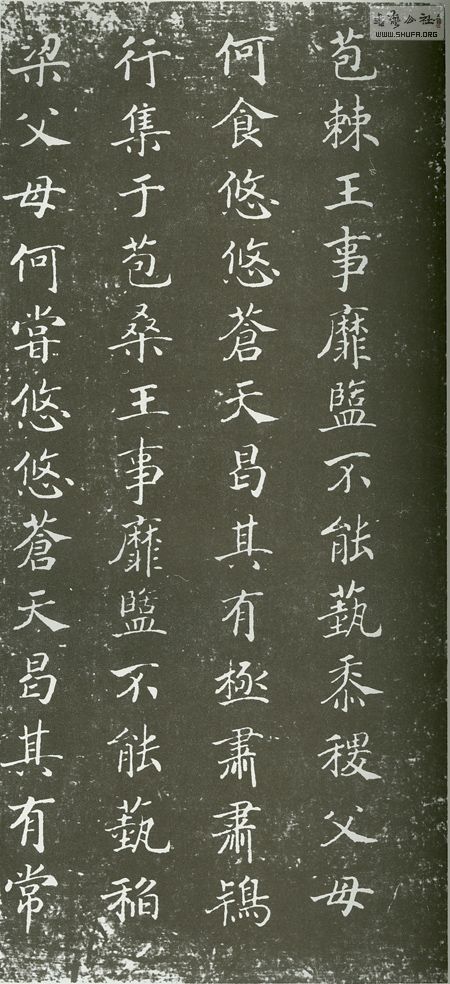 苞棘王事靡盬不能蓺黍稷父母
何食悠悠蒼天曷其有極肅肅鴇
行集于苞桑王事靡盬不能蓺稻
梁父母何甞悠悠蒼天曷其有常
公社
WWW.SHUFA.ORG